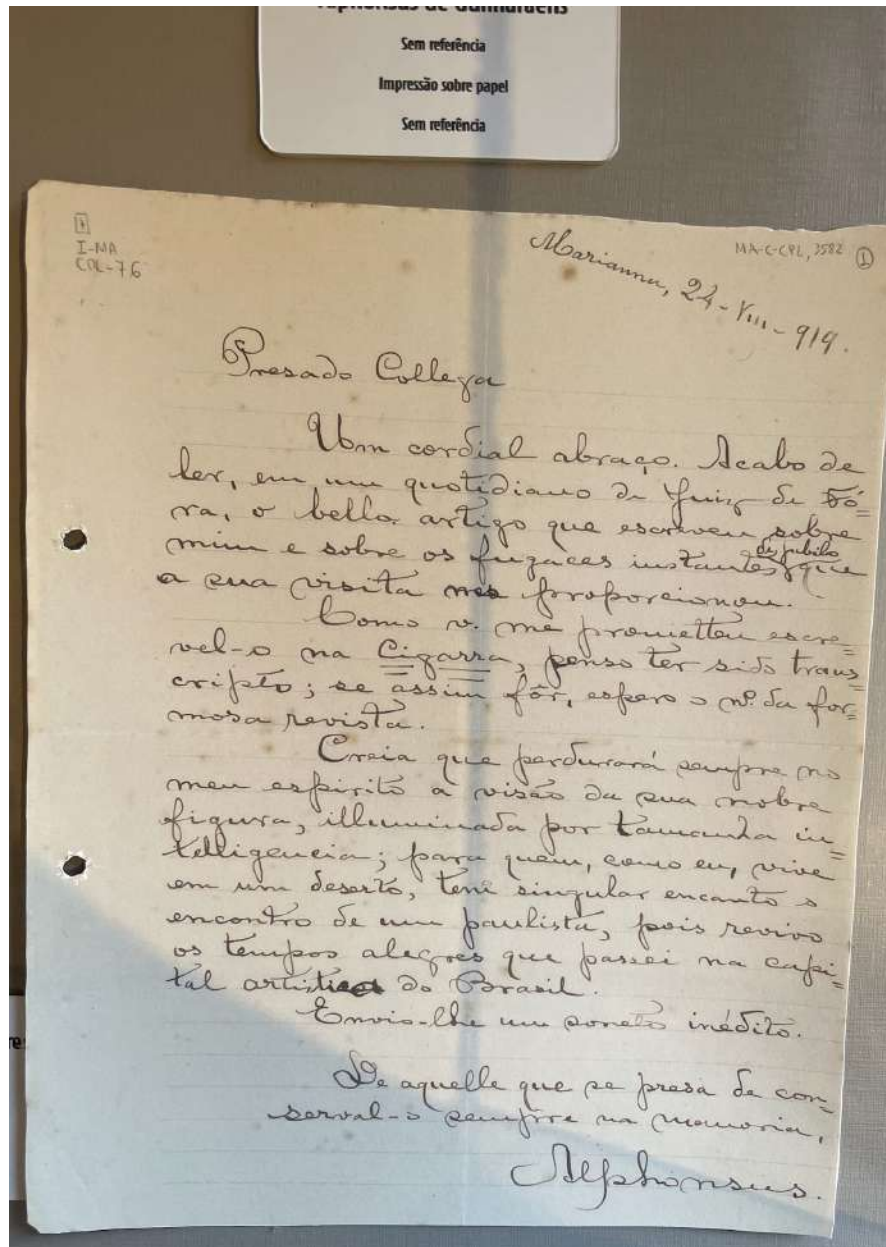 Alphonsus de Guimaraens
Sem referência
Impressão sobre papel
Sem referência
I-MA
CPL-76
MA-C-CPL, 3582 1
Marianna, 24-VIII-919.
Presado Collega
Um cordial abraço. Acabo de
ler, em um quotidiano de Juiz de Fó=
ra, o bello artigo que escreveu sobre
mim e sobre os fugaces instantes de jubilo que
a sua visita nos proporcionou.
Como v. me prometteu escre=
vel-o na Cigarra, penso ter sido trans=
cripto; se assim fôr, espero o nº. da for=
mosa revista.
Creia que perdurará sempre no
meu espirito a visão da sua nobre
figura, illuminada por tamanha in=
telligencia; para quem, como eu, vive
em um deserto, tem singular encanto o
encontro de um paulista, pois revivo
os tempos alegres que passei na capi=
tal artistica do Brasil.
Envio-lhe um soneto inédito.
De aquelle que se presa de con=
serval-o sempre na memoria,
Alphonsus.